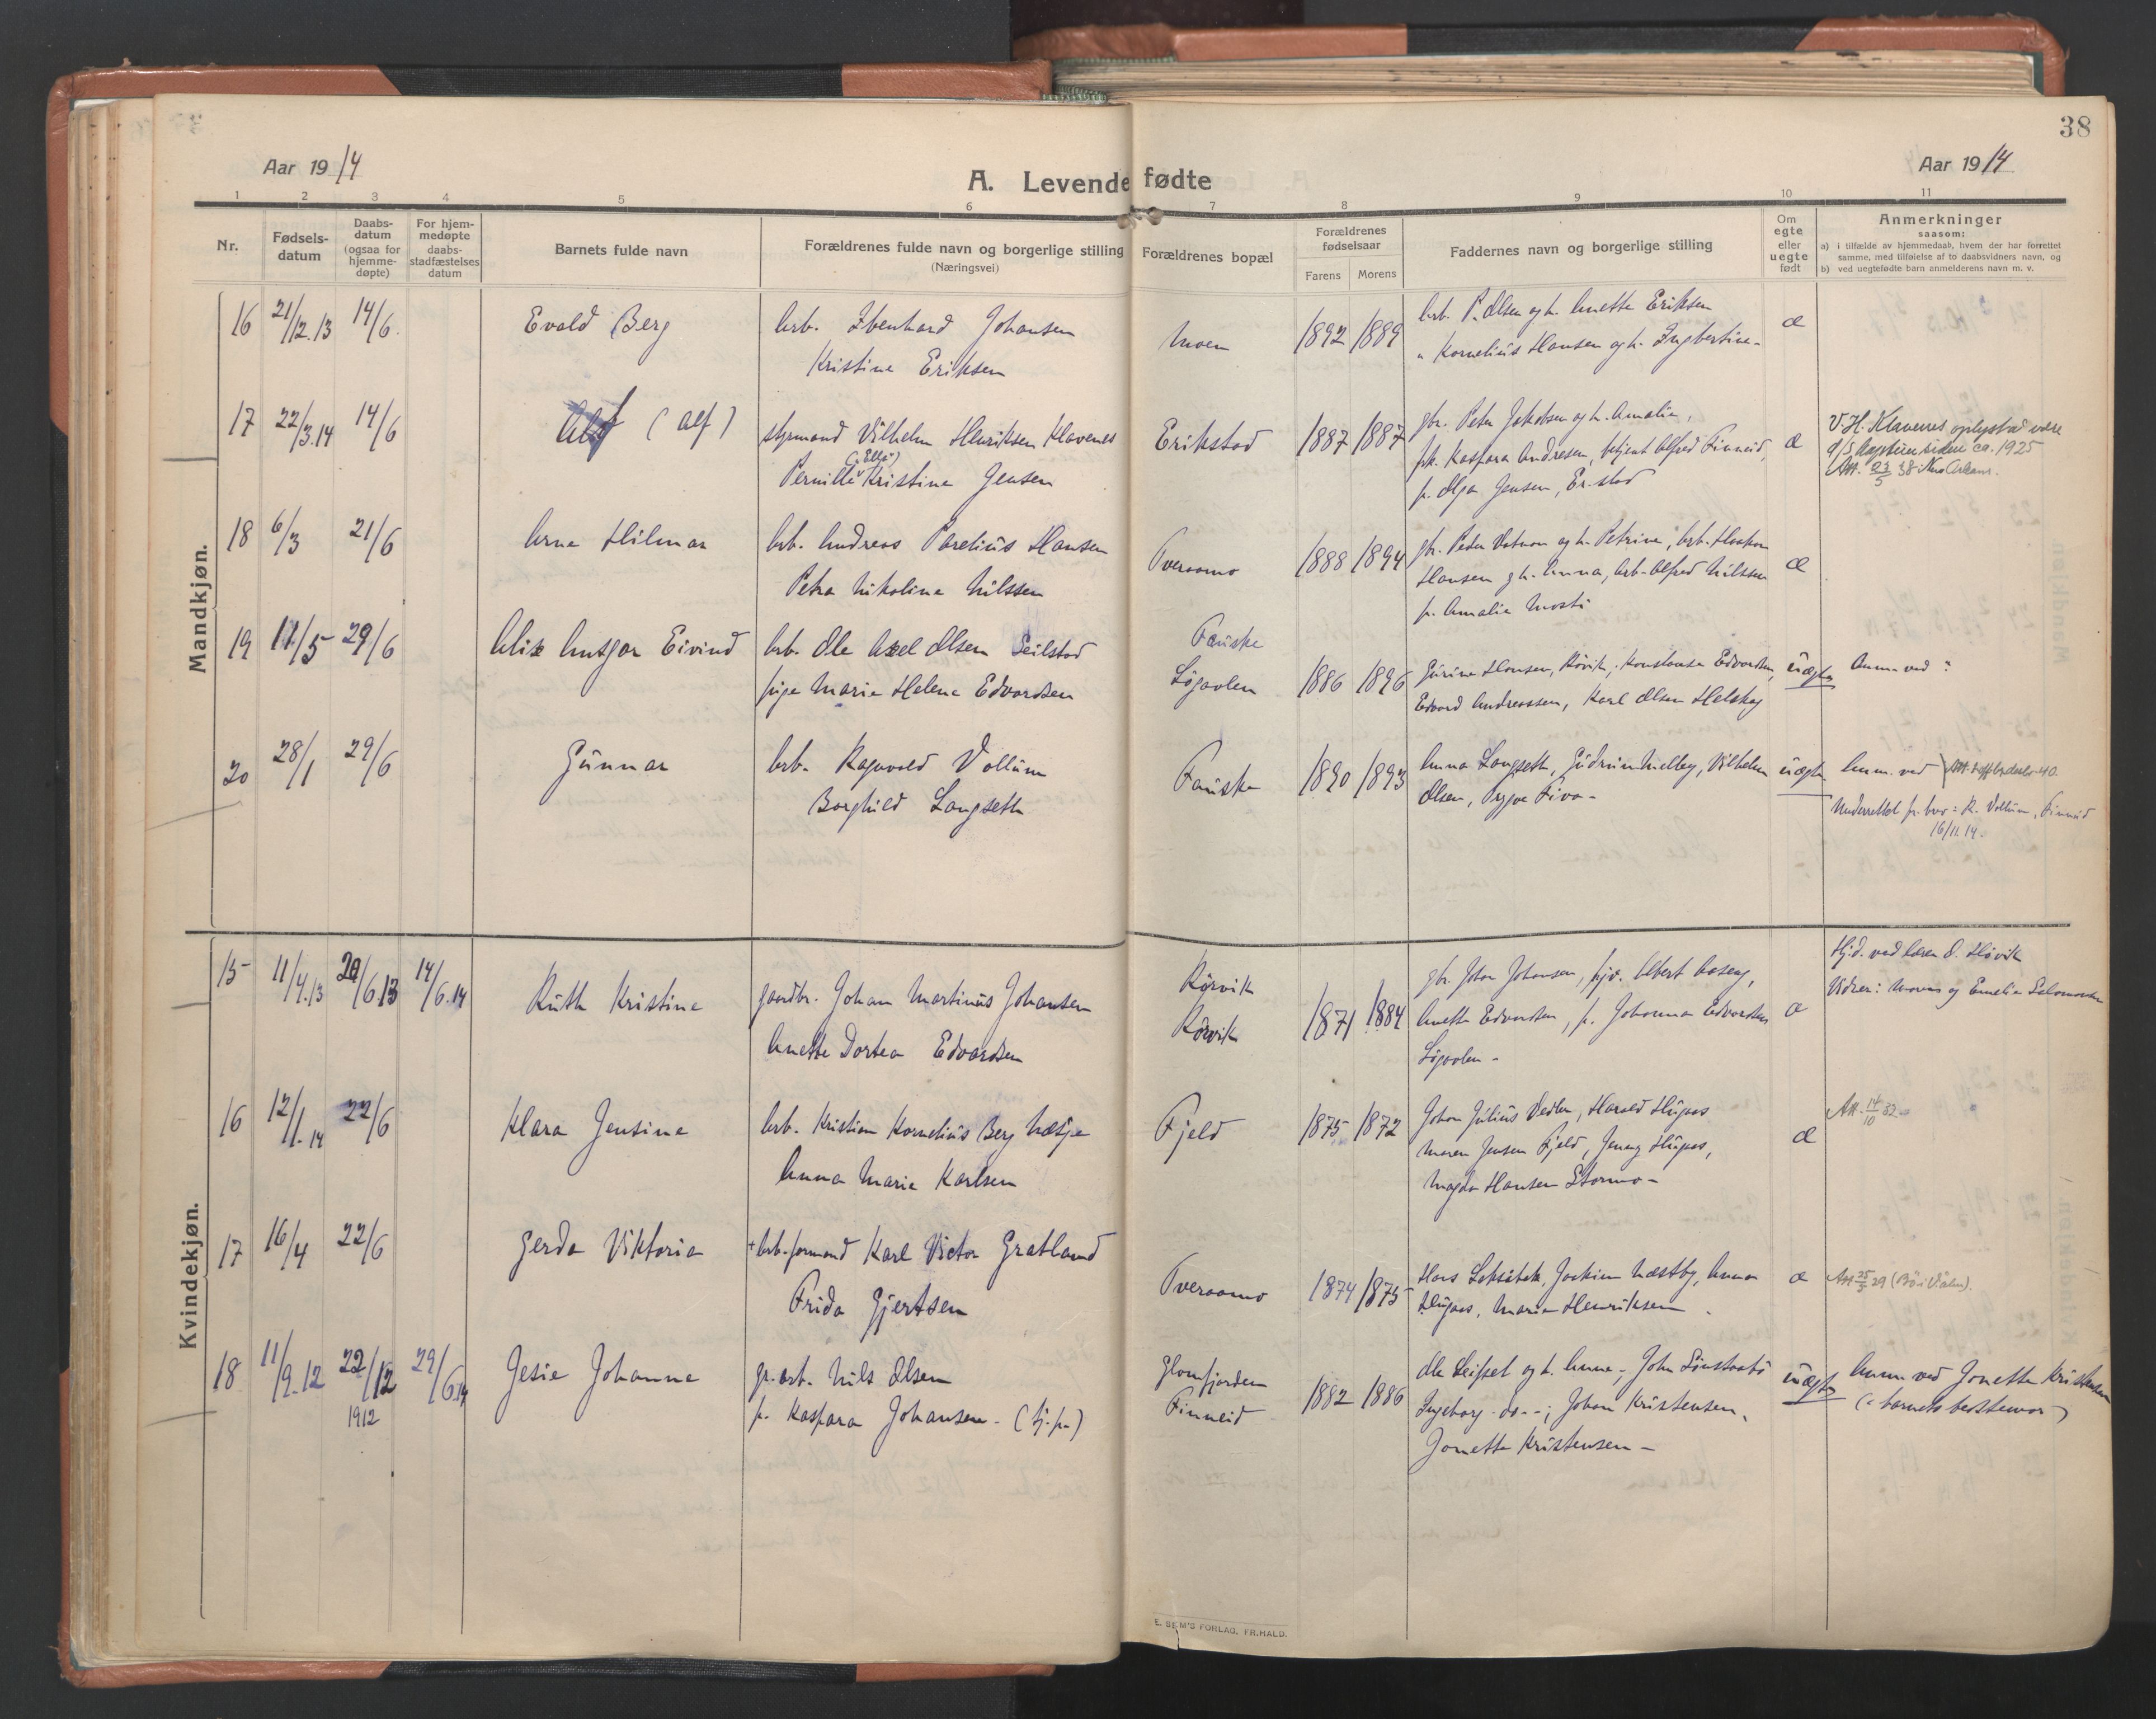 38
Aar 1914
Aar 1914
A. Levende fødte
1 2 3 4 5 6 7 8 9 10 11
Nr.
Fødsels-
datum
Daabs-
datum
(ogsaa for
hjemme-
døpte)
For hjem-
medøpte
daabs-
stadfæstelses
datum
Barnets fulde navn
Forældrenes fulde navn og borgerlige stilling
(Næringsvei)
Forældrenes bopæl
Forældrenes
fødselsaar
Farens Morens
Faddernes navn og borgerlige stilling
Om
egte
eller
uegte
født
Anmerkninger
saasom:
a) i tilfælde av hjemmedaab, hvem der har forrettet
samme, med tilføielse af to daabsvidners navn, og
b) ved uegtefødte barn anmelderens navn m. v.
Mandkjøn.
16 21/12.13 14/6. Evald Berg arb. Ebenhard Johansen Moen 1892 1889 arb. P. Olsen og h. Anette Eriksen æ
Kristine Eriksen " Kornelius Hansen og h. Ingbertine-
17 22/3.14 14/6 Alf (Alf) styrmand Vilhelm Henriksen Klavenes Erikstad 1887 1887 gbr. Peter Jakobsen og h. Amalie, æ V. H. Klavenes
("Ella")
Pernille Kristine Jensen frk. Kaspara Andresen, betjent Alfred Finneid, siden ca. 1925
p. Olga Jensen, Er.stad Att. 23/5 38
18 6/3 21/6 Arne Hilmar arb. Andreas Parelius Hansen Tveraamo 1888 1894 gbr. Peder Vatnan og h. Petrine, arb. Haakon æ
Petra Nikoline Nilssen Hansen og h. Anna, arb. Alfred Nilssen
p. Amalie Mosti
19 11/5 29/6 Alix Ansgar Eivind arb. Ole Axel Olsen Seilstad Fauske
pige Marie Helene Edvardsen Løgavlen 1886 1896 Gurine Hansen, Røvik, Konstanse Edvardsen, uægte Anm. ved :
Edvard Andreassen, Karl Olsen Helskog
20 28/1 29/6 Gunnar arb. Ragnvald Vollum Fauske 1890 1893 Anna Langseth, Gudrun Melby, Vilhelm uægte Anm. ved
Borghild Langseth Olsen, Trygve Five- Underrettet R. Vollum, Finneid
16/11 14.
Kvindekjøn.
15 11/4.13 29/6 13 14/6.14 Ruth Kristine gaardbr. Johan Martinus Johansen Rørvik gbr. Johan Johansen, Albert Aaseng, Hjd. ved O. Høvik
Anette Dortea Edvardsen Rørvik 1871 1884 Anette Edvardsen, p. Johanna Edvardsen æ Vidner: Maren og Emelie Salomonsen
Løgavlen -
16 12/1.14 22/6 Klara Jensine arb. Kristian Kornelius Berg Hætje Fjeld 1875 1872 Johan Julius Vedler, Harald Hugaas æ Att. 14/10 32
Anna Marie Karlsen Maren Jensen Fjeld, Jenny Hugaas,
Magda Hansen Stormo -
17 16/4 22/6 Gerda Viktoria + arb.formand Karl Victor Gratland Tveraamo 1874 1875 Hans Joakim Næstby, Anna æ Att 25/5 29
Frida Gjertsen Hugaas, Marie Henriksen.
18 11/9.12 22/12 1912 29/6.14 Jesie Johanne gr.arb. Nils Olsen Glomfjorden Ole Leifset og h. Anna; John uægte Anm ved Jonette Kristensen
p. Kaspara Johansen - (tj.p.) Finneid 1882 1886 Ingeborg do--; Johan Kristensen, (= barnets bestemor)
Jonette Kristensen -
E. SEM'S FORLAG, FR.HALD.